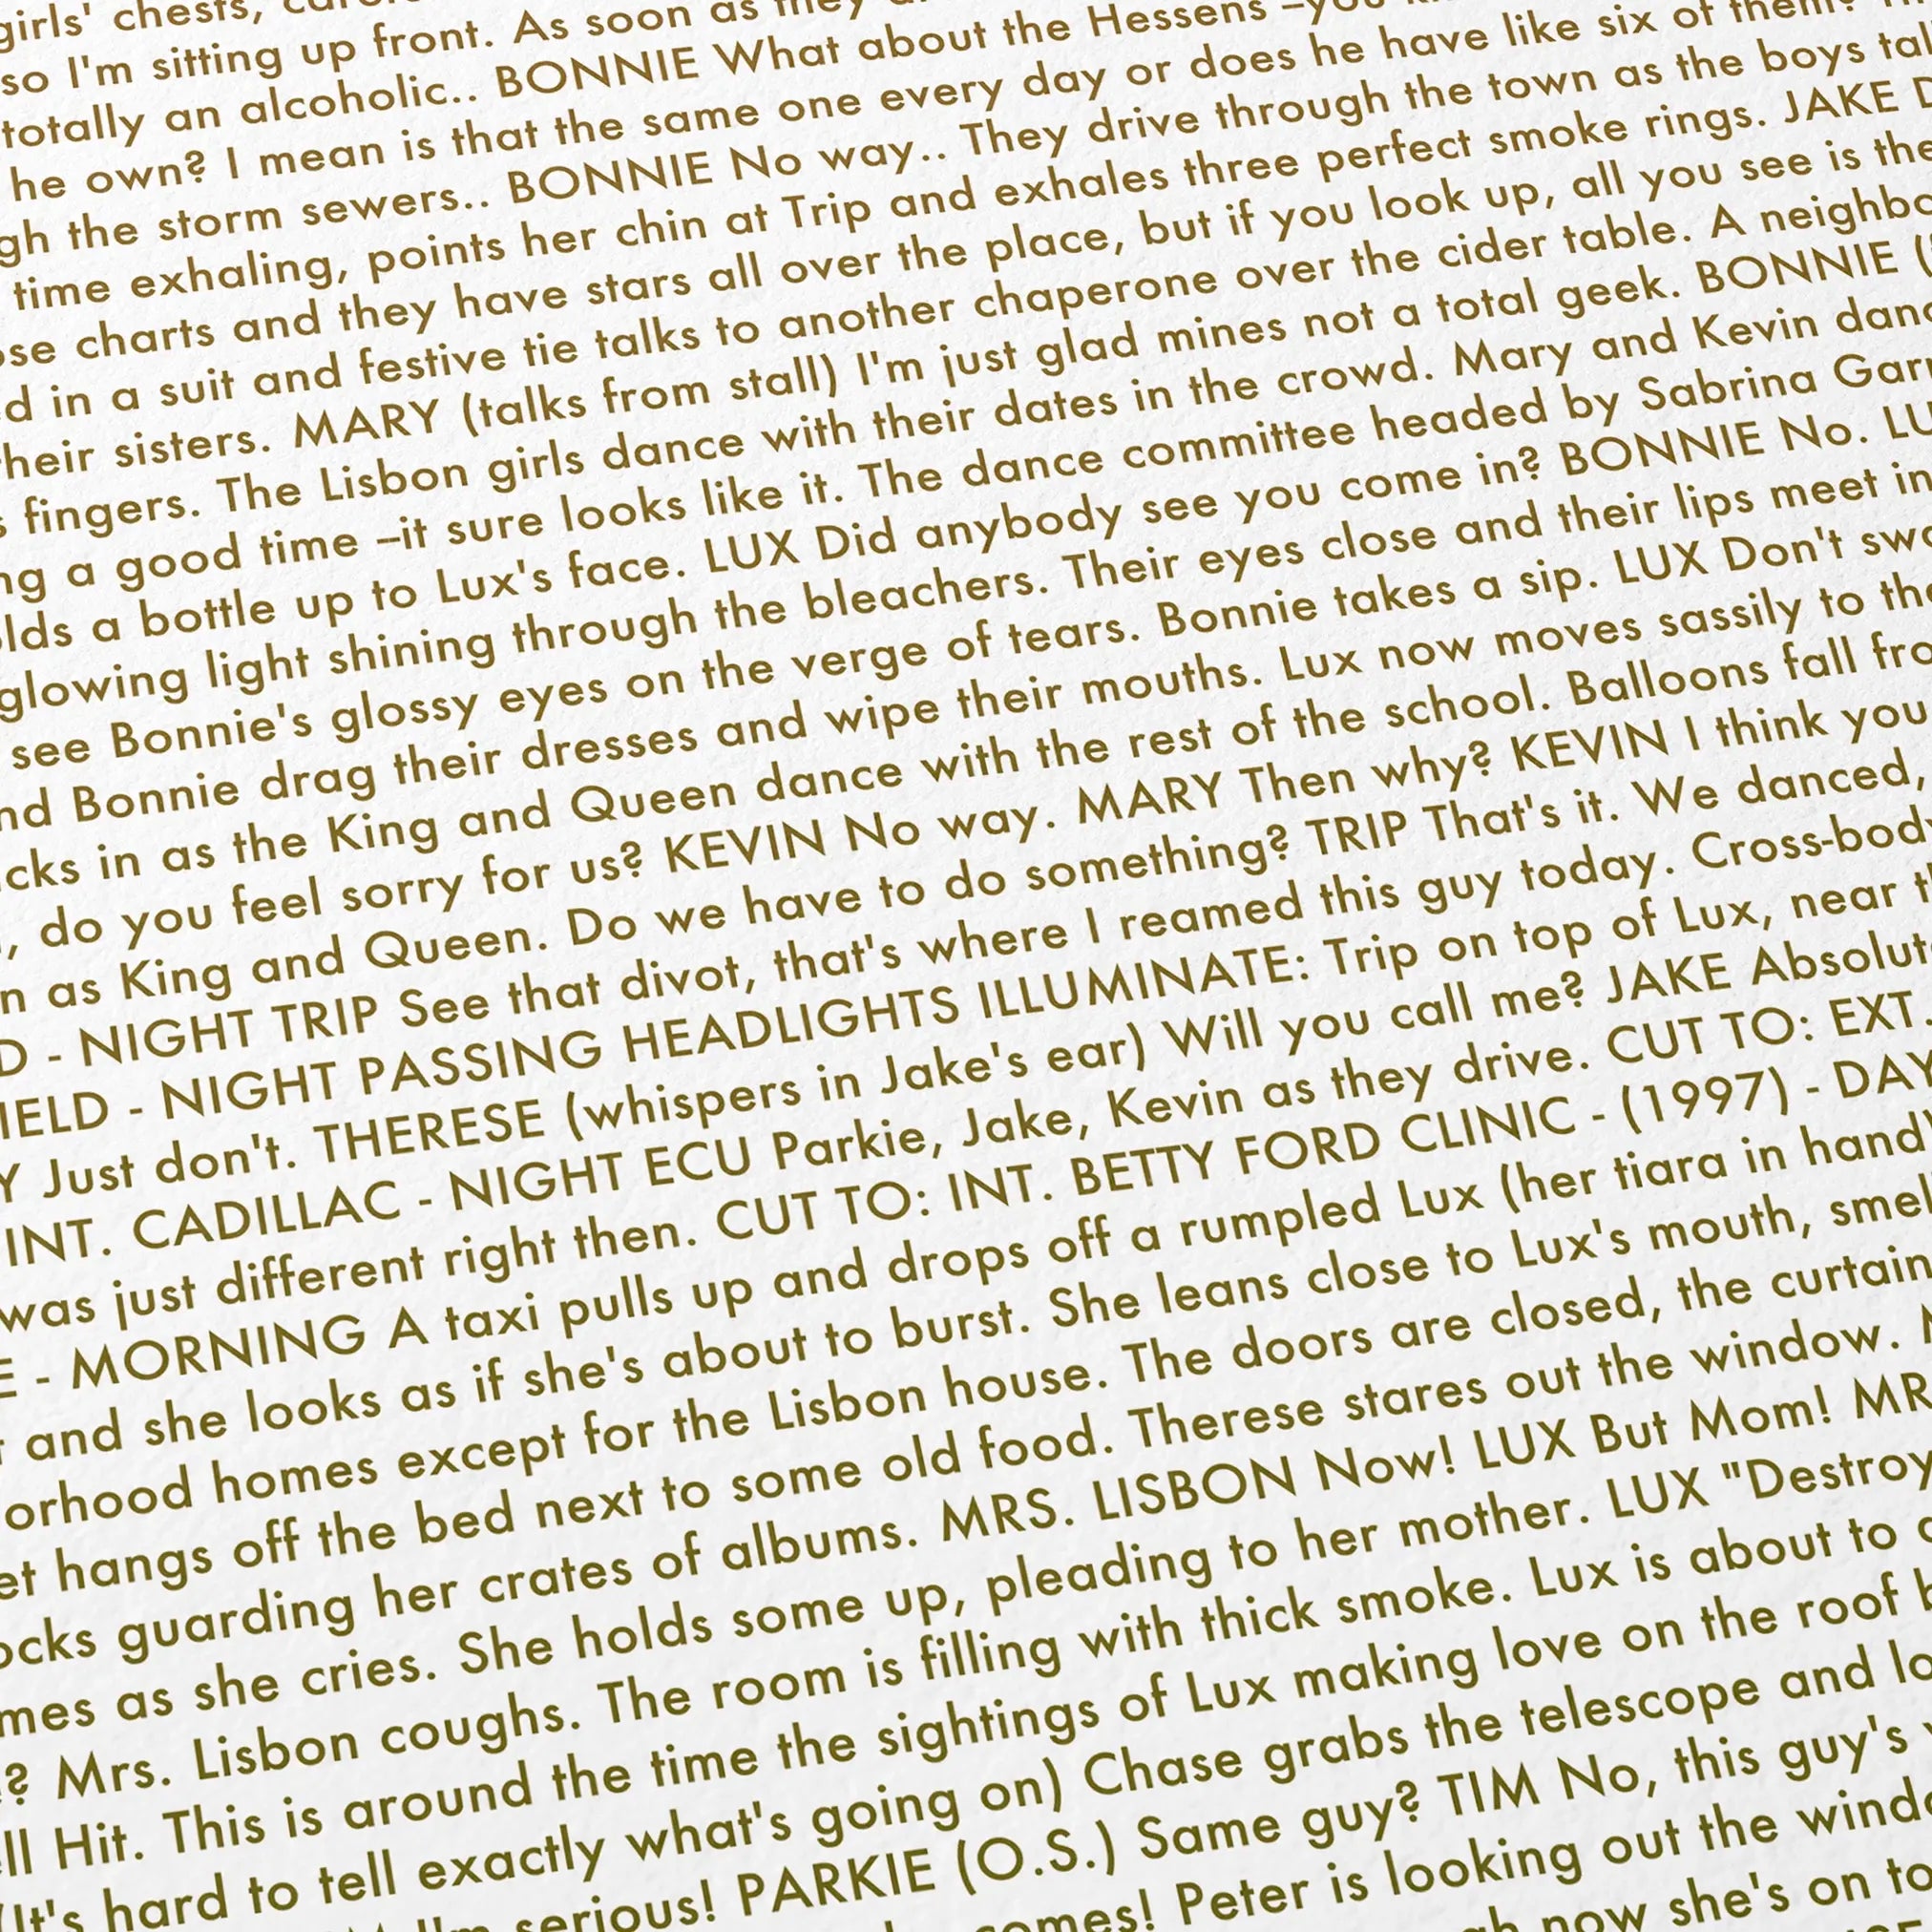 girls' chests,
so I'm sitting up front. As soon as they
totally an alcoholic.. BONNIE What about the Hessens –you
he own? I mean is that the same one every day or does he have like six of them?
gh the storm sewers.. BONNIE No way.. They drive through the town as the boys tal
time exhaling, points her chin at Trip and exhales three perfect smoke rings. JAKE
ose charts and they have stars all over the place, but if you look up, all you see is the
d in a suit and festive tie talks to another chaperone over the cider table. A neighbo
their sisters. MARY (talks from stall) I'm just glad mines not a total geek. BONNIE (
s fingers. The Lisbon girls dance with their dates in the crowd. Mary and Kevin danc
ng a good time –it sure looks like it. The dance committee headed by Sabrina Garr
olds a bottle up to Lux's face. LUX Did anybody see you come in? BONNIE No. LU
glowing light shining through the bleachers. Their eyes close and their lips meet in
see Bonnie's glossy eyes on the verge of tears. Bonnie takes a sip. LUX Don't swa
nd Bonnie drag their dresses and wipe their mouths. Lux now moves sassily to the
cks in as the King and Queen dance with the rest of the school. Balloons fall fro
, do you feel sorry for us? KEVIN No way. MARY Then why? KEVIN I think you
n as King and Queen. Do we have to do something? TRIP That's it. We danced,
D - NIGHT TRIP See that divot, that's where I reamed this guy today. Cross-body
IELD - NIGHT PASSING HEADLIGHTS ILLUMINATE: Trip on top of Lux, near t
Y Just don't. THERESE (whispers in Jake's ear) Will you call me? JAKE Absolut
INT. CADILLAC - NIGHT ECU Parkie, Jake, Kevin as they drive. CUT TO: EXT.
was just different right then. CUT TO: INT. BETTY FORD CLINIC - (1997) - DAY
E - MORNING A taxi pulls up and drops off a rumpled Lux (her tiara in hand
and she looks as if she's about to burst. She leans close to Lux's mouth, smel
orhood homes except for the Lisbon house. The doors are closed, the curtain
et hangs off the bed next to some old food. Therese stares out the window.
ocks guarding her crates of albums. MRS. LISBON Now! LUX But Mom! MR
mes as she cries. She holds some up, pleading to her mother. LUX "Destroy
? Mrs. Lisbon coughs. The room is filling with thick smoke. Lux is about to
ll Hit. This is around the time the sightings of Lux making love on the roof
(It's hard to tell exactly what's going on) Chase grabs the telescope and lo
I'm serious! PARKIE (O.S.) Same guy? TIM No, this guy's
comes! Peter is looking out the windo
now she's on to